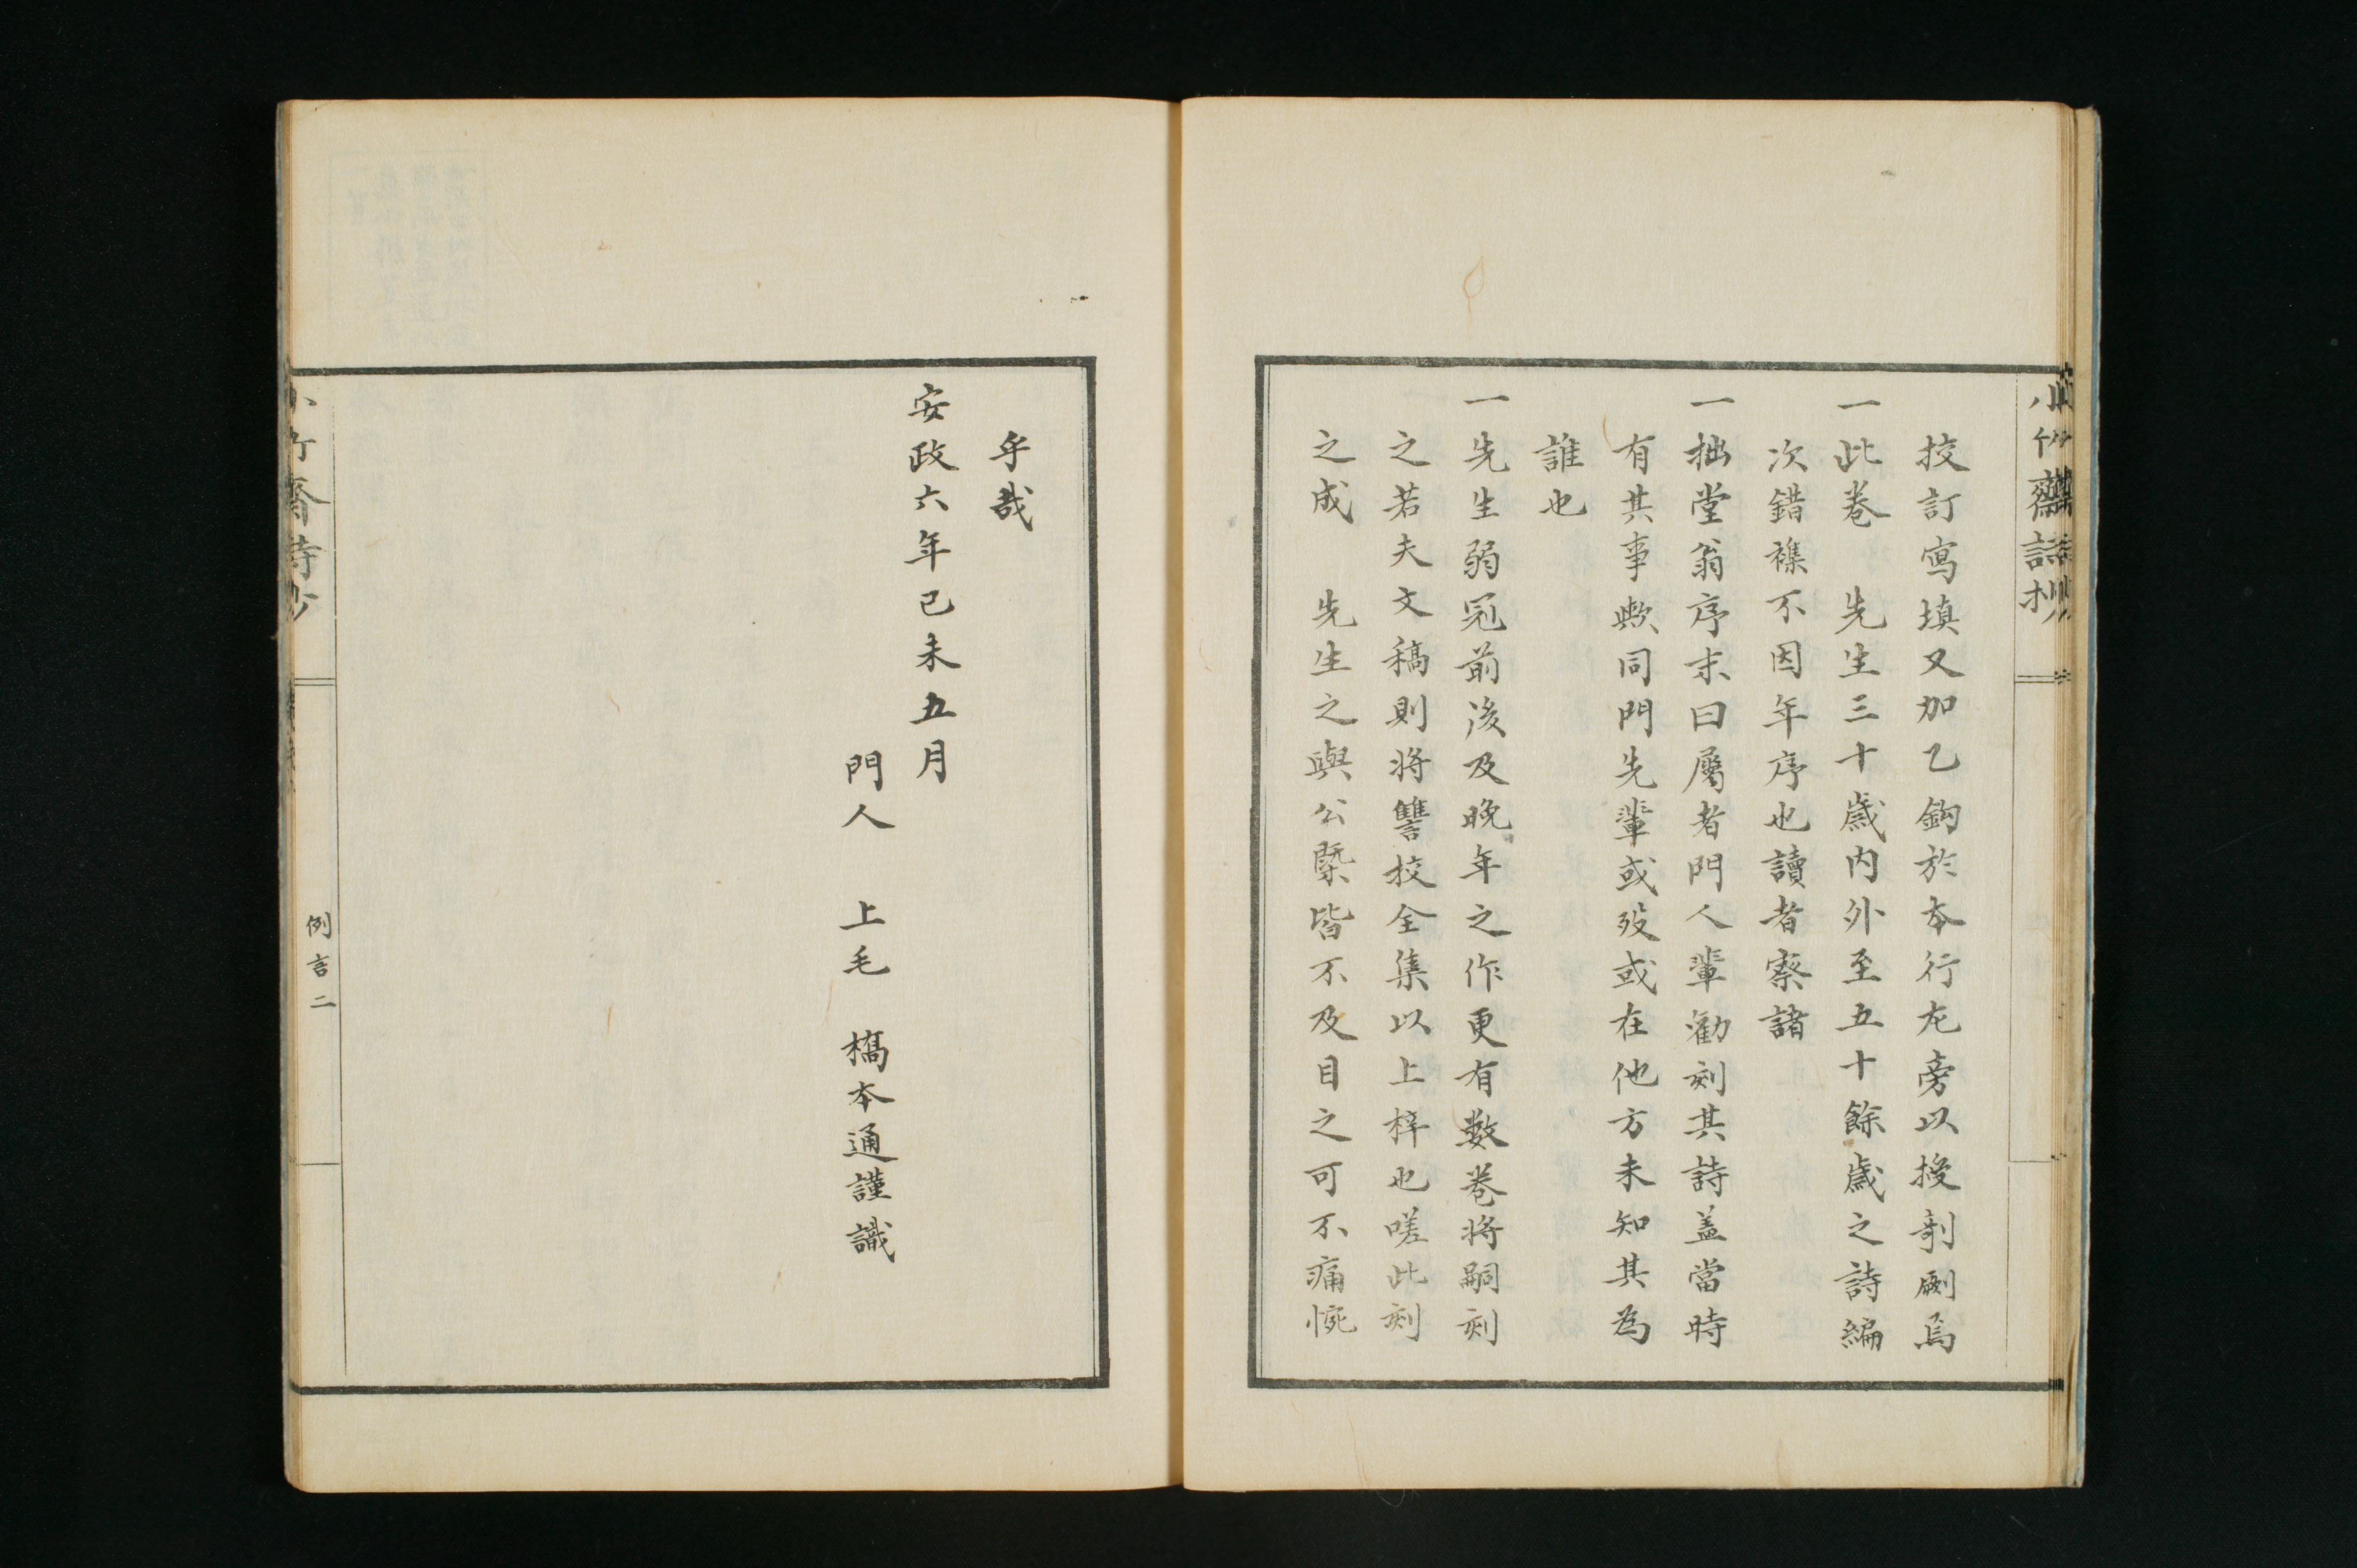 小竹齋詩抄
挍訂寫填又加乙鈎於本行左旁以授剞劂焉
一此卷　先生三十歳内外至五十餘歳之詩編
次錯襍不因年序也讀者察諸
一拙堂翁序末曰屬者門人輩勸刻其詩盖當時
有其事歟同門先輩或歿或在他方未知其為
誰也
一先生弱冠前後及晩年之作更有數卷將嗣刻
之若夫文稿則將讐挍全集以上梓也嗟此刻
之成　先生之與公槩皆不及目之可不痛惋
乎哉
安政六年己未五月
門人　上毛　橋本通謹識
小竹齋詩抄
例言二